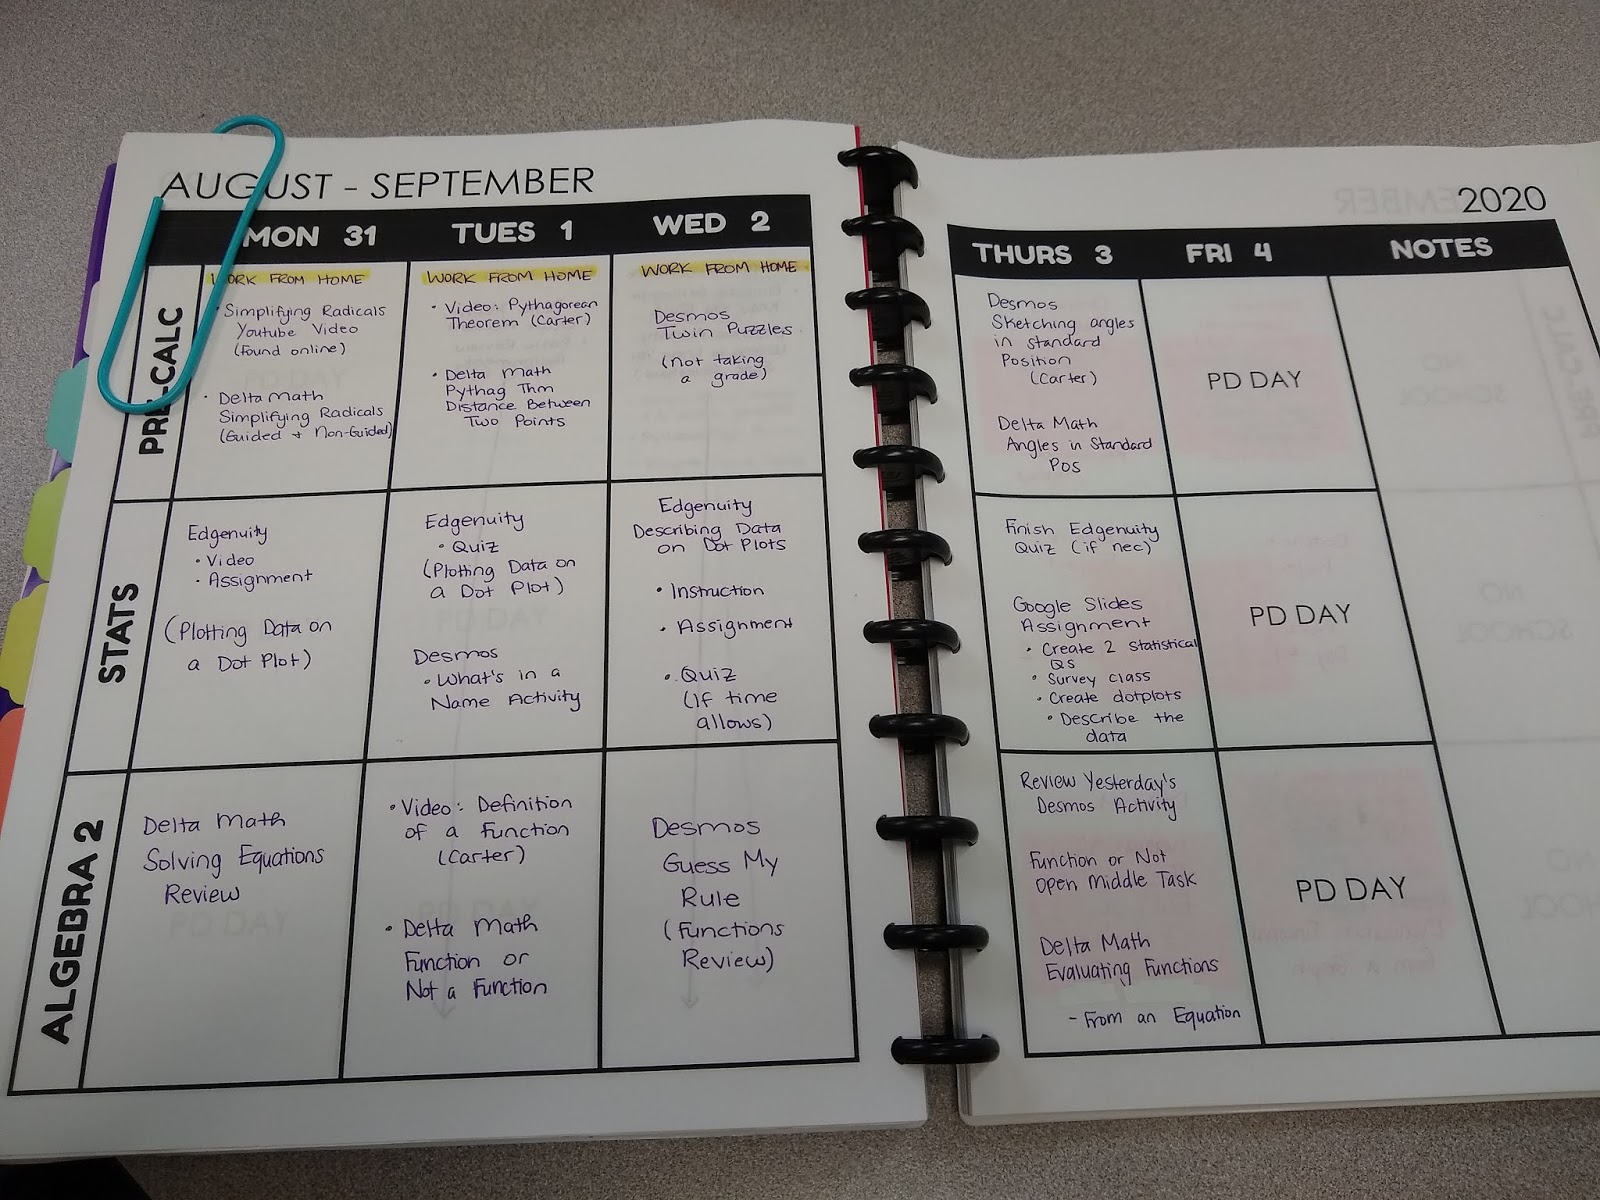 AUGUST - SEPTEMBER
2020
MON 31
TUES 1
WED 2
THURS 3
FRI 4
NOTES
PRE-CALC
WORK FROM HOME
• Simplifying Radicals
Youtube Video
(Found online)
• Delta Math
Simplifying Radicals
(Guided + Non-Guided)
WORK FROM HOME
• Video: Pythagorean
Theorem (Carter)
• Delta Math
Pythag Thm
Distance Between
Two Points
WORK FROM HOME
Desmos
Twin Puzzles
(Not taking
a grade)
Desmos
Sketching angles
in standard
Position
(Carter)
Delta Math
Angles in Standard
Pos
PD DAY
STATS
Edgenuity
• Video
• Assignment
(Plotting Data on
a Dot Plot)
Edgenuity
• Quiz
(Plotting Data on
a Dot Plot)
Desmos
• What's in a
Name Activity
Edgenuity
Describing Data
on Dot Plots
• Instruction
• Assignment
• Quiz
(If time
allows)
Finish Edgenuity
Quiz (if nec)
Google Slides
Assignment
• Create 2 Statistical
Qs
• Survey class
• Create dotplots
• Describe the
data
PD DAY
ALGEBRA 2
Delta Math
Solving Equations
Review
• Video: Definition
of a Function
(Carter)
• Delta Math
Function or
Not a Function
Desmos
Guess My
Rule
(Functions
Review)
Review Yesterday's
Desmos Activity
Function or Not
Open Middle Task
Delta Math
Evaluating Functions
- From an Equation
PD DAY